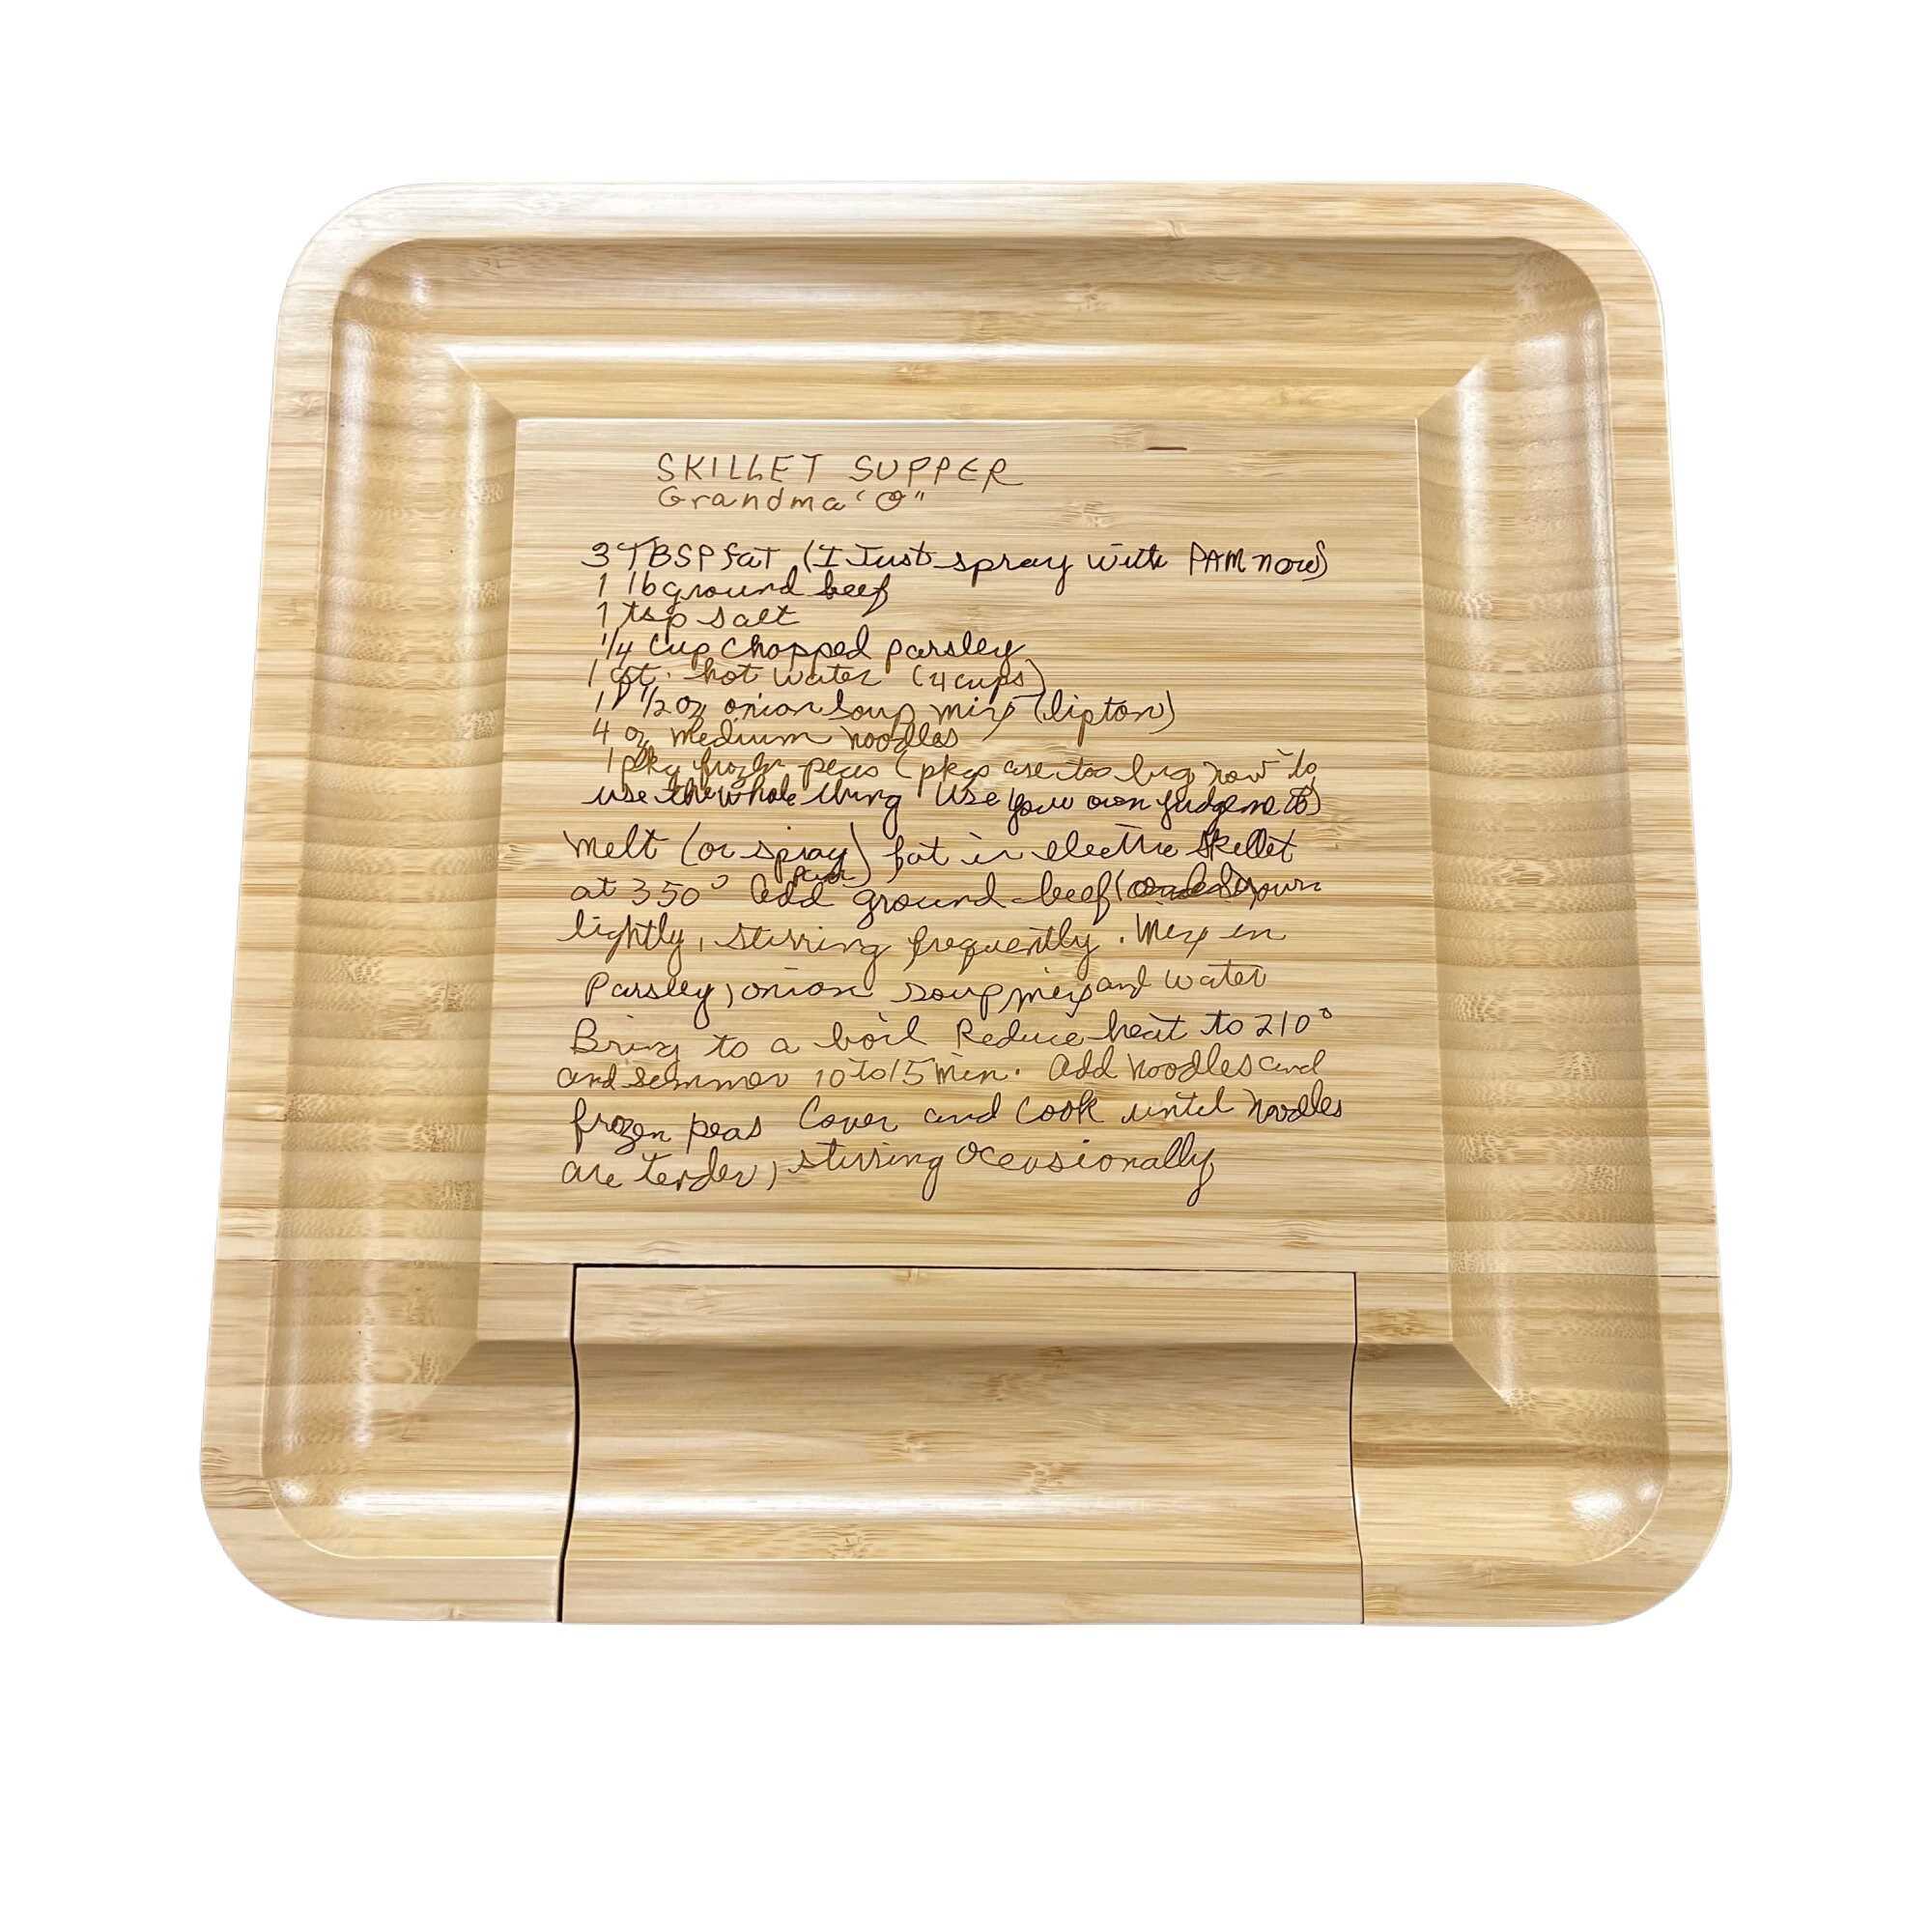 SKILLET SUPPER
Grandma "O"
3 TBSP fat (I Just spray with PAM now)
1 lb ground beef
1 tsp salt
1/4 cup chopped parsley
1 qt. hot water (4 cups)
1 1/2 oz onion soup mix (lipton)
4 oz medium noodles
1 pkg frozen peas (pkgs are too big now to
use the whole thing Use your own judgement)
Melt (or spray) fat in electric skillet
pan
at 350° Add ground beef brown
lightly, stirring frequently. Mix in
Parsley, onion soup mix and water
Bring to a boil Reduce heat to 210°
and simmer 10 to 15 min. Add noodles and
frozen peas Cover and cook until noodles
are tender, stirring occasionally